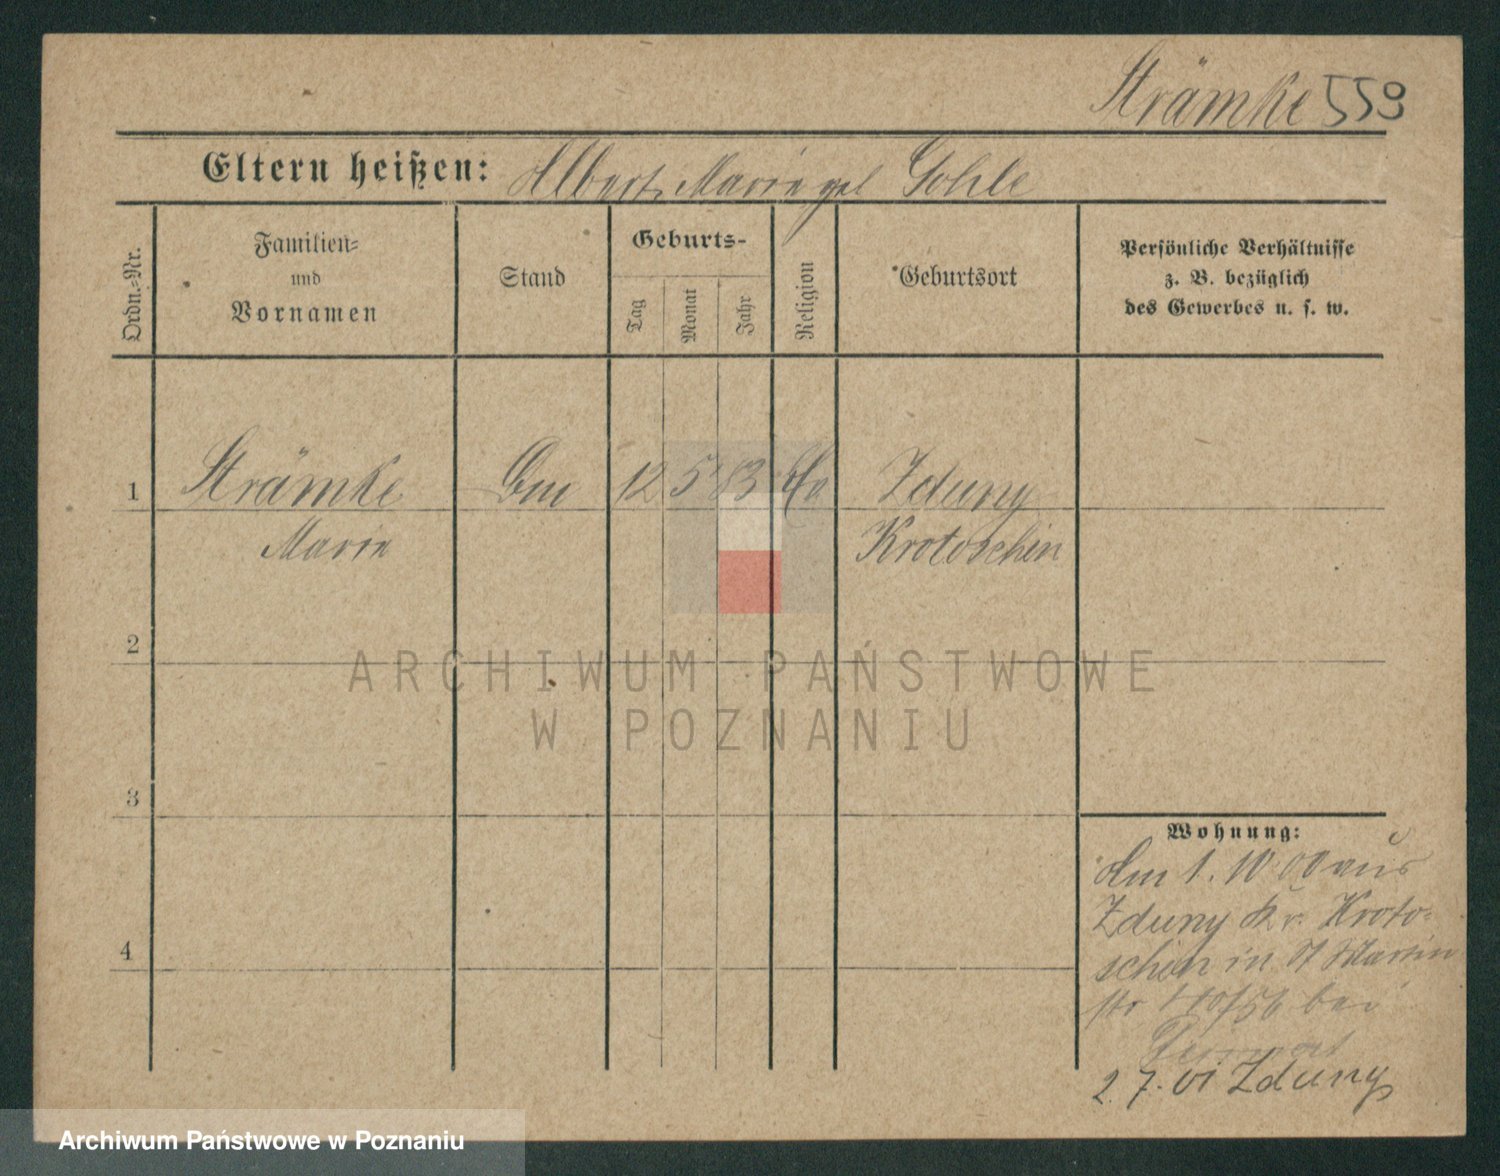 Strämke 559
Eltern heißen: Albert, Marie geb Gohle
Ordn.-Nr.
Familien-
und
Vornamen
Stand
Geburts-
Tag
Monat
Jahr
Religion
Geburtsort
Persönliche Verhältnisse
z. B. bezüglich
des Gewerbes u. s. w.
1 Strämke 12 5 83 Zduny
Marie Krotoschin
2
3
4
Wohnung:
Am 1. 10 00 aus
Zduny Kr. Kroto-
schin in St Martin
str bei
2. 7. 01 Zduny
ARCHIWUM PAŃSTWOWE
W POZNANIU
Archiwum Państwowe w Poznaniu